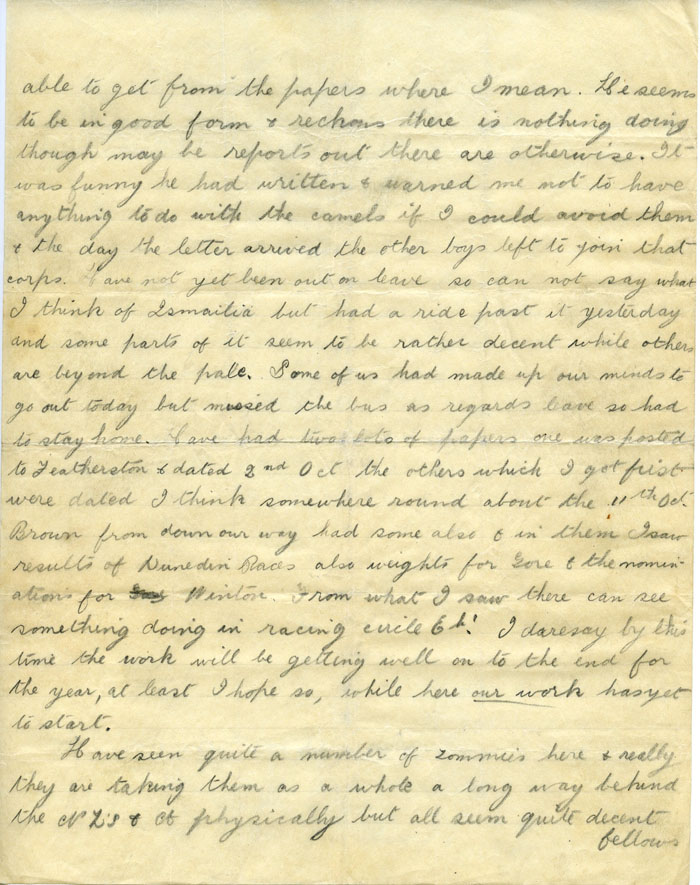 able to get from the papers where I mean. He seems
to be in good form & reckons there is nothing doing
though may be reports out there are otherwise. It
was funny he had written & warned me not to have
anything to do with the camels if I could avoid them
& the day the letter arrived the other boys left to join that
corps. Have not yet been out on leave so can not say what
I think of Ismailia but had a ride past it yesterday
and some parts of it seem to be rather decent while others
are beyond the pale. Some of us had made up our minds to
go out today but missed the bus as regards leave so had
to stay home. Have had two lots of papers one was posted
to Featherston & dated 2nd Oct the others which I got first
were dated I think somewhere round about the 11th Oct.
Brown from down our way had some also & in them I saw
results of Dunedin Races also weights for Gore & the nomin-
ations for Winton. From what I saw there can see
something doing in racing circle Eh! I daresay by this
time the work will be getting well on to the end for
the year, at least I hope so, while here our work has yet
to start.
Have seen quite a number of Tommies here & really
they are taking them as a whole a long way behind
the NZ's & A physically but all seem quite decent
fellows